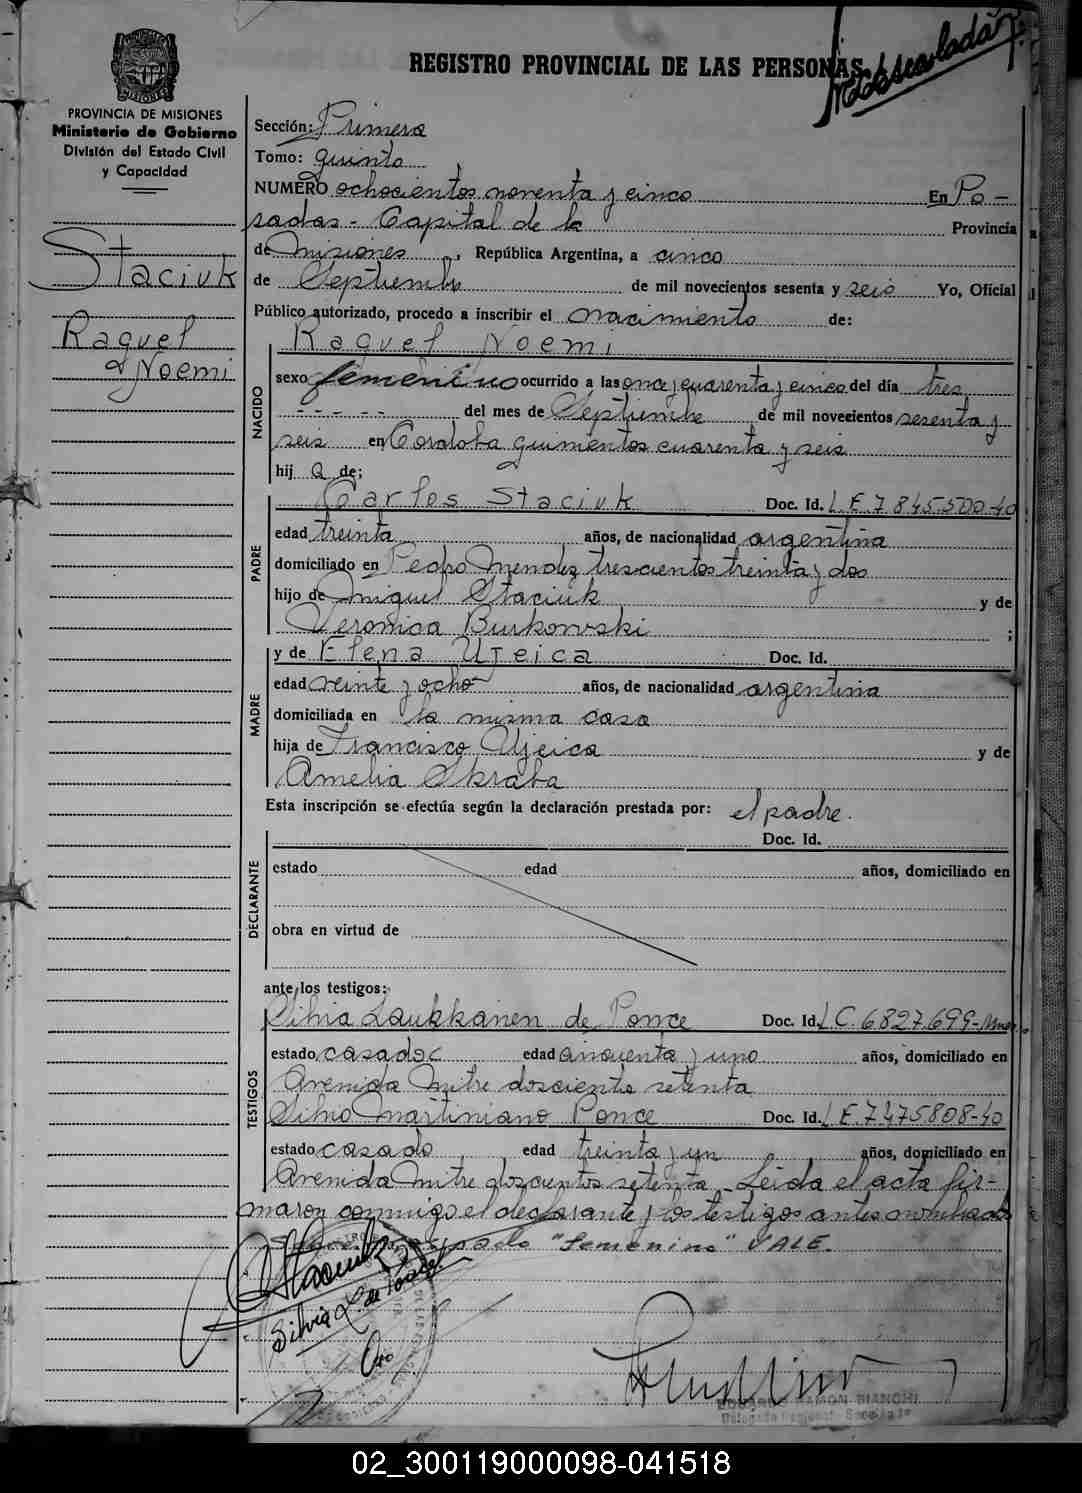 REGISTRO PROVINCIAL DE LAS PERSONAS
PROVINCIA DE MISIONES
Ministerio de Gobierno
División del Estado Civil
y Capacidad
Staciuk
Raquel
Noemi
Sección: Primera
Tomo: quinto
NUMERO ochocientos noventa y cinco En Po-
sadas - Capital de la Provincia
de Misiones, República Argentina, a cinco
de Septiembre de mil novecientos sesenta y seis Yo, Oficial
Público autorizado, procedo a inscribir el nacimiento de:
Raquel Noemi
NACIDO
sexo femenino ocurrido a las once y cuarenta y cinco del día tres
- - - - - del mes de Septiembre de mil novecientos sesenta y
seis en Cordoba quinientos cuarenta y seis
hij a de;
PADRE
Carlos Staciuk Doc. Id. L.E. 7.845.500-40
edad treinta años, de nacionalidad argentina
domiciliado en Pedro Mendez trescientos treinta y dos
hijo de Miguel Staciuk y de
Veronica Burkowski ;
MADRE
y de Elena Ujeica Doc. Id.
edad veinte y ocho años, de nacionalidad argentina
domiciliada en la misma casa
hija de Francisco Ujeica y de
Amelia Skraba
Esta inscripción se efectúa según la declaración prestada por: el padre.
DECLARANTE
Doc. Id.
estado edad años, domiciliado en
obra en virtud de
ante los testigos:
TESTIGOS
Silvia Laukkanen de Ponce Doc. Id. L.C. 6.827.699-
estado casada edad cincuenta y uno años, domiciliado en
Avenida Mitre doscientos setenta
Silvio Martiniano Ponce Doc. Id. L.E. 7.475.808-40
estado casado edad treinta y un años, domiciliado en
Avenida Mitre doscientos setenta - Leida el acta fir-
maron conmigo el declarante y los testigos antes nombrados
"femenino" VALE.
Staciuk
Silvia L. de Ponce
EDUARDO RAMON BIANCHI
02_300119000098-041518